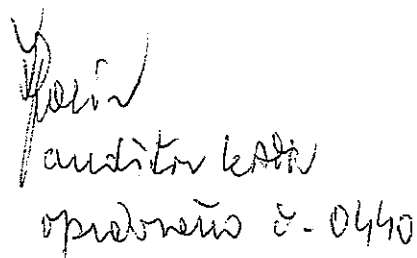 auditor KAČR
oprávnění č. 0440